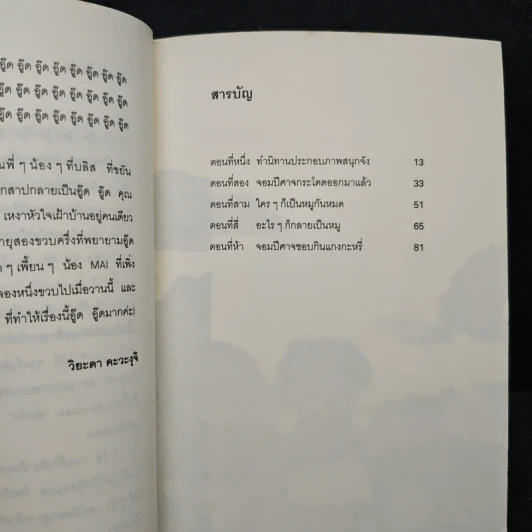 อู๊ด อู๊ด อู๊ด อู๊ด อู๊ด อู๊ด อู๊ด อู๊ด
อู๊ด อู๊ด อู๊ด อู๊ด อู๊ด อู๊ด อู๊ด
อู๊ด อู๊ด อู๊ด อู๊ด อู๊ด อู๊ด อู๊ด
พี่ ๆ น้อง ๆ ที่บลิส ที่ขยัน
กสาปกลายเป็นอู๊ด อู๊ด คุณ
เหงาหัวใจเฝ้าบ้านอยู่คนเดียว
ยุสองขวบครึ่งที่พยายามอู๊ด
ๆ เพี้ยน ๆ น้อง MAI ที่เพิ่ง
ลองหนึ่งขวบไปเมื่อวานนี้ และ
ที่ทำให้เรื่องนี้อู๊ด อู๊ดมากค่ะ)
วิยะดา คะวะงุจิ
สารบัญ
ตอนที่หนึ่ง ทำนิทานประกอบภาพสนุกจัง 13
ตอนที่สอง จอมปีศาจกระโดดออกมาแล้ว 33
ตอนที่สาม ใคร ๆ ก็เป็นหมูกันหมด 51
ตอนที่สี่ อะไร ๆ ก็กลายเป็นหมู 65
ตอนที่ห้า จอมปีศาจชอบกินแกงกะหรี่ 81